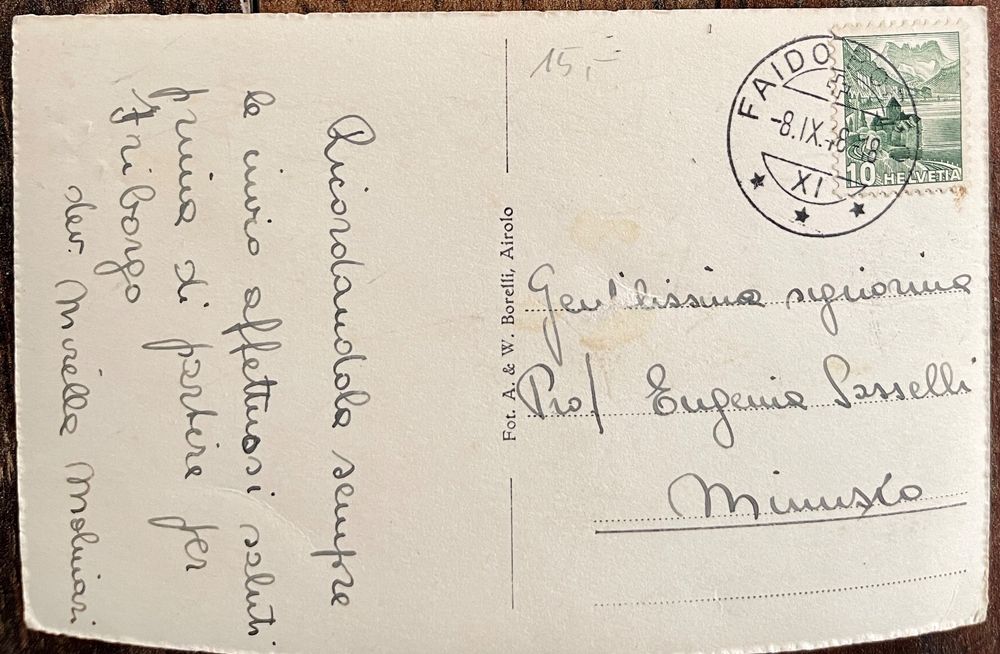 Ricordandola sempre
le invio affettuosi saluti
prima di partire per
Friborgo
dev. Mirella Molinari
Fot. A. & W. Borelli, Airolo
15,-
FAIDO
-8.IX.48
XI
10 HELVETIA
Gentilissima signorina
Prof Eugenia Sasselli
Minusio